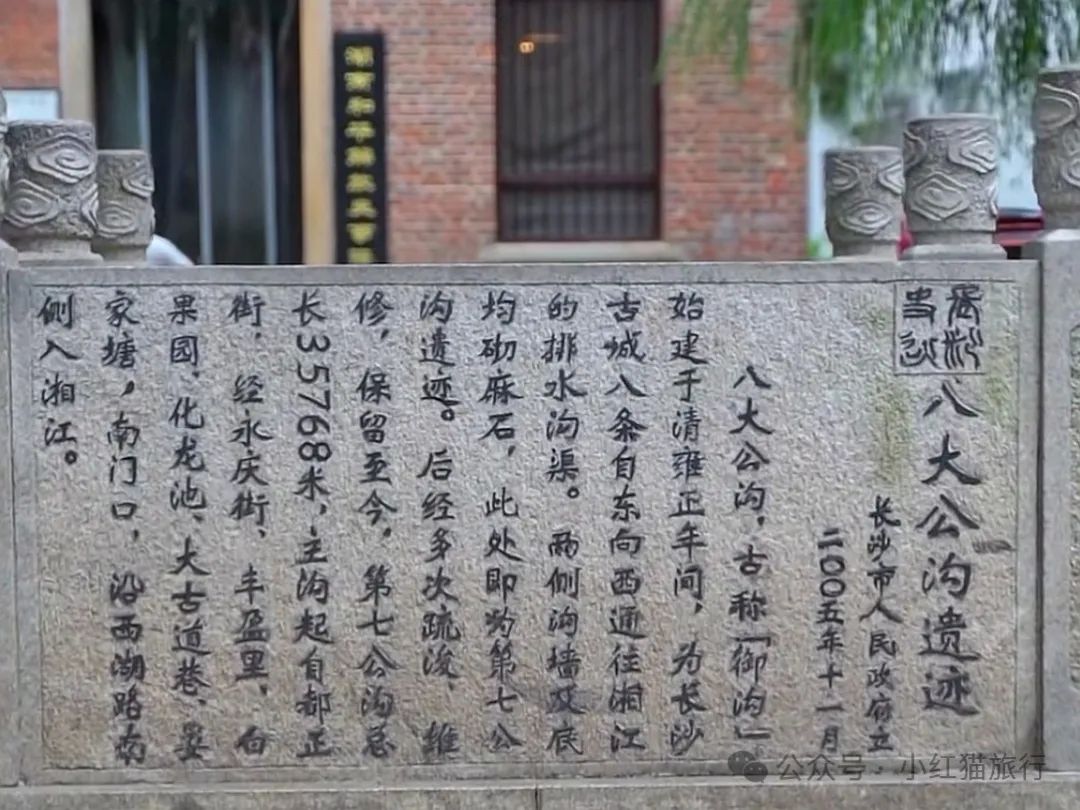 湖南和平解放史事
八大公沟遗迹
长沙市人民政府立
二〇〇五年十一月
八大公沟，古称「御沟」
始建于清雍正年间，为长沙
古城八条自东向西通往湘江
的排水沟渠。两侧沟墙及底
均砌麻石，此处即为第七公
沟遗迹。后经多次疏浚、维
修，保留至今，第七公沟总
长35768米，主沟起自都正
街，经永庆街、丰盈里、白
果园、化龙池、大古道巷、晏
家塘，南门口，沿西湖路南
侧入湘江。
公众号·小红猫旅行